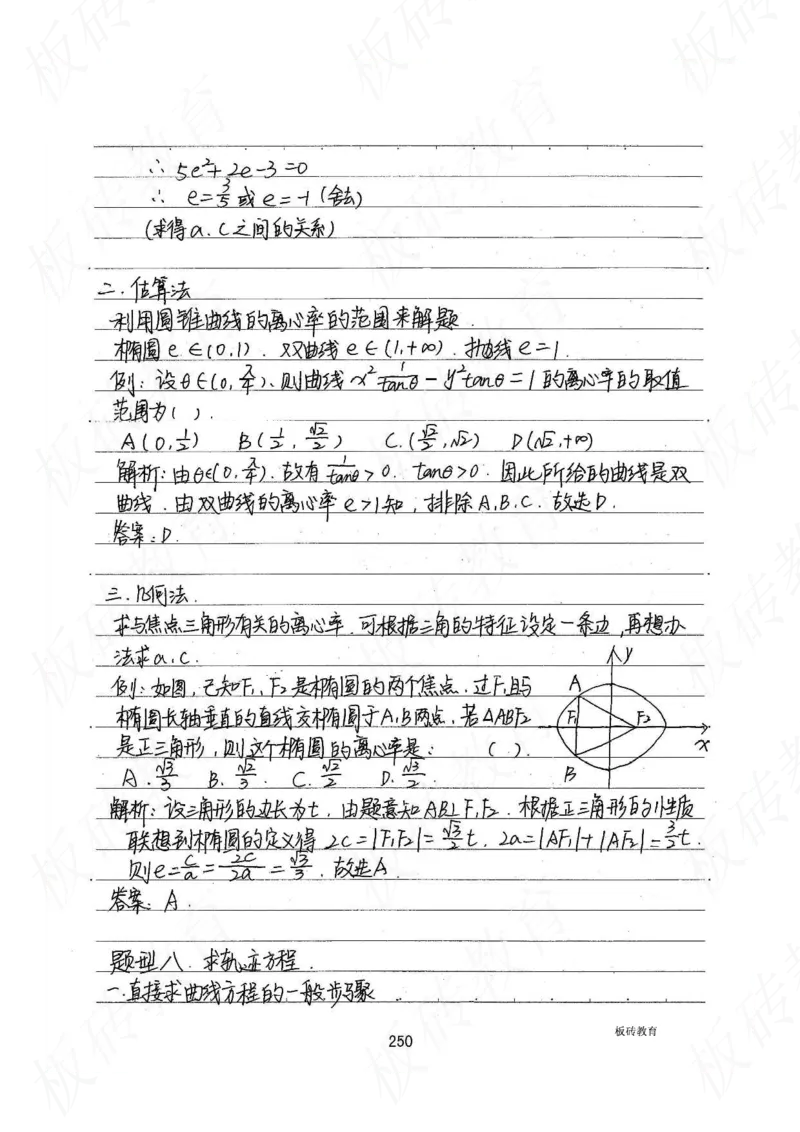 ∴ 5e²+2e-3=0
∴ e=3/5 或 e=-1 (舍去)
(求得a、c之间的关系)
二.估算法
利用圆锥曲线的离心率的范围来解题.
椭圆 e∈(0,1). 双曲线 e∈(1,+∞). 抛物线 e=1.
例:设θ∈(0,π/4),则曲线 x² 1/tanθ - y²tanθ=1 的离心率的取值
范围为( ).
A(0,1/2) B(1/2,√2/2) C.(√2/2,√2) D(√2,+∞)
解析:由θ∈(0,π/4).故有 1/tanθ>0. tanθ>0. 因此所给的曲线是双
曲线.由双曲线的离心率e>1知,排除A、B、C.故选D.
答案:D.
三.几何法.
求与焦点三角形有关的离心率.可根据三角的特征设定一条边,再想办
法求a,c.
例:如图,已知F₁、F₂是椭圆的两个焦点.过F₁且与
椭圆长轴垂直的直线交椭圆于A、B两点,若△ABF₂
是正三角形,则这个椭圆的离心率是: ( ).
A.√3/3 B.√2/3 C.√2/2 D.√3/2
y
A
F₁ F₂
x
B
解析:设三角形的边长为t.由题意知AB⊥F₁F₂.根据正三角形的性质
联想到椭圆的定义得 2c=|F₁F₂|=√3/2 t. 2a=|AF₁|+|AF₂|=3/2 t.
则e=c/a=2c/2a=√3/3.故选A.
答案:A.
题型八.求轨迹方程.
一.直接求曲线方程的一般步骤
250
板砖教育